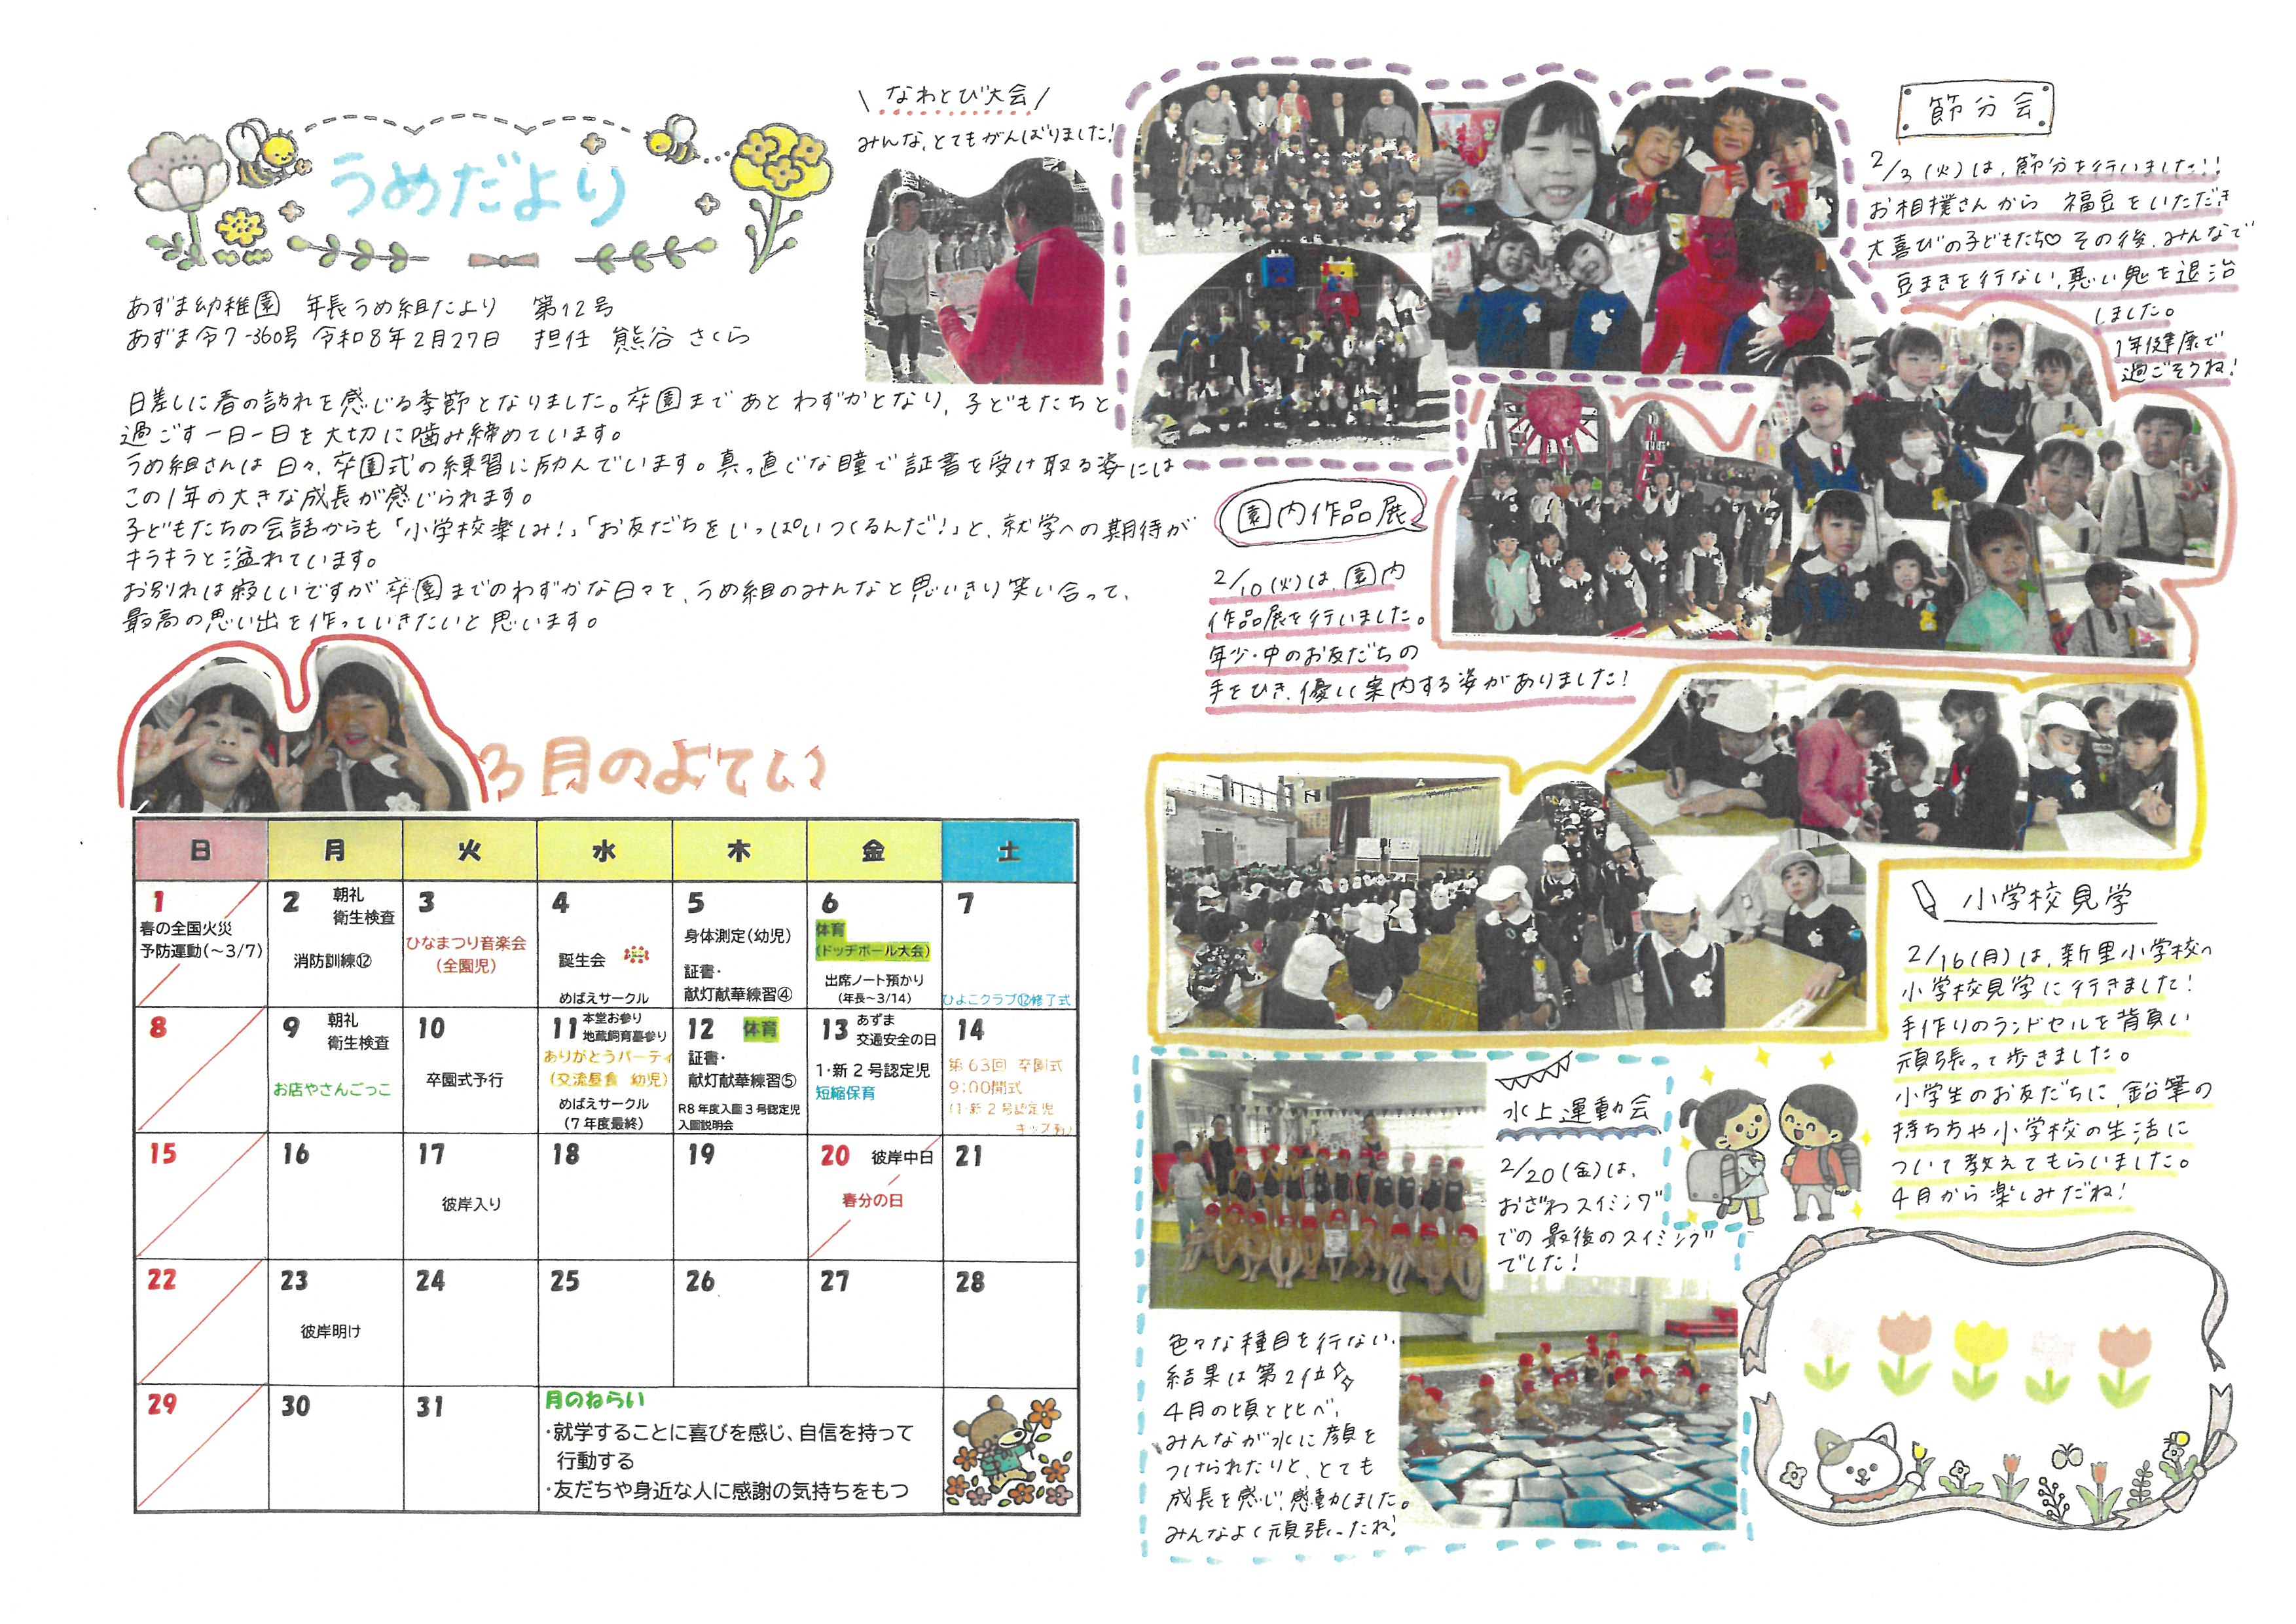 うめだより
あずま幼稚園 年長うめ組だより 第12号
あずま令7-360号 令和8年2月27日 担任 熊谷 さくら
日差しに春の訪れを感じる季節となりました。卒園まであとわずかとなり、子どもたちと
過ごす一日一日を大切に噛み締めています。
うめ組さんは日々、卒園式の練習に励んでいます。真っ直ぐな瞳で証書を受け取る姿には
この1年の大きな成長が感じられます。
子どもたちの会話からも「小学校楽しみ!」「お友だちをいっぱいつくるんだ!」と、就学への期待が
キラキラと溢れています。
お別れは寂しいですが卒園までのわずかな日々を、うめ組のみんなと思いきり笑い合って、
最高の思い出を作っていきたいと思います。
なわとび大会
みんな、とてもがんばりました!
節分会
2/3(火)は、節分を行いました!!
お相撲さんから 福豆をいただき
大喜びの子どもたち♡ その後、みんなで
豆まきを行ない、悪い鬼を退治
しました。
1年健康で
過ごそうね!
園内作品展
2/10(火)は、園内
作品展を行いました。
年少・中のお友だちの
手をひき、優しく案内する姿がありました!
小学校見学
2/16(月)は、新里小学校へ
小学校見学に行きました!
手作りのランドセルを背負い
頑張って歩きました。
小学生のお友だちに、鉛筆の
持ち方や小学校の生活に
ついて教えてもらいました。
4月から楽しみだね!
水上運動会
2/20(金)は、
おざわスイミング
での最後のスイミング
でした!
色々な種目を行ない、
結果は第2位☆
4月の頃と比べ、
みんなが水に顔を
つけられたりと、とても
成長を感じ、感動しました。
みんなよく頑張ったね!
3月のよてい
日 月 火 水 木 金 土
1
春の全国火災
予防運動(~3/7)
2 朝礼
衛生検査
消防訓練⑫
3
ひなまつり音楽会
(全園児)
4
誕生会
めばえサークル
5
身体測定(幼児)
証書・
献灯献華練習④
6
体育
(ドッヂボール大会)
出席ノート預かり
(年長~3/14)
7
ひよこクラブ⑫修了式
8
9 朝礼
衛生検査
お店やさんごっこ
10
卒園式予行
11 本堂お参り
地蔵飼育墓参り
ありがとうパーティ
(交流昼食 幼児)
めばえサークル
(7年度最終)
12 体育
証書・
献灯献華練習⑤
R8年度入園3号認定児
入園説明会
13 あずま
交通安全の日
1・新2号認定児
短縮保育
14
第63回 卒園式
9:00開式
(1・新2号認定児
キッズ有)
15
16
17
彼岸入り
18
19
20 彼岸中日
春分の日
21
22
23
彼岸明け
24
25
26
27
28
29
30
31
月のねらい
・就学することに喜びを感じ、自信を持って
行動する
・友だちや身近な人に感謝の気持ちをもつ